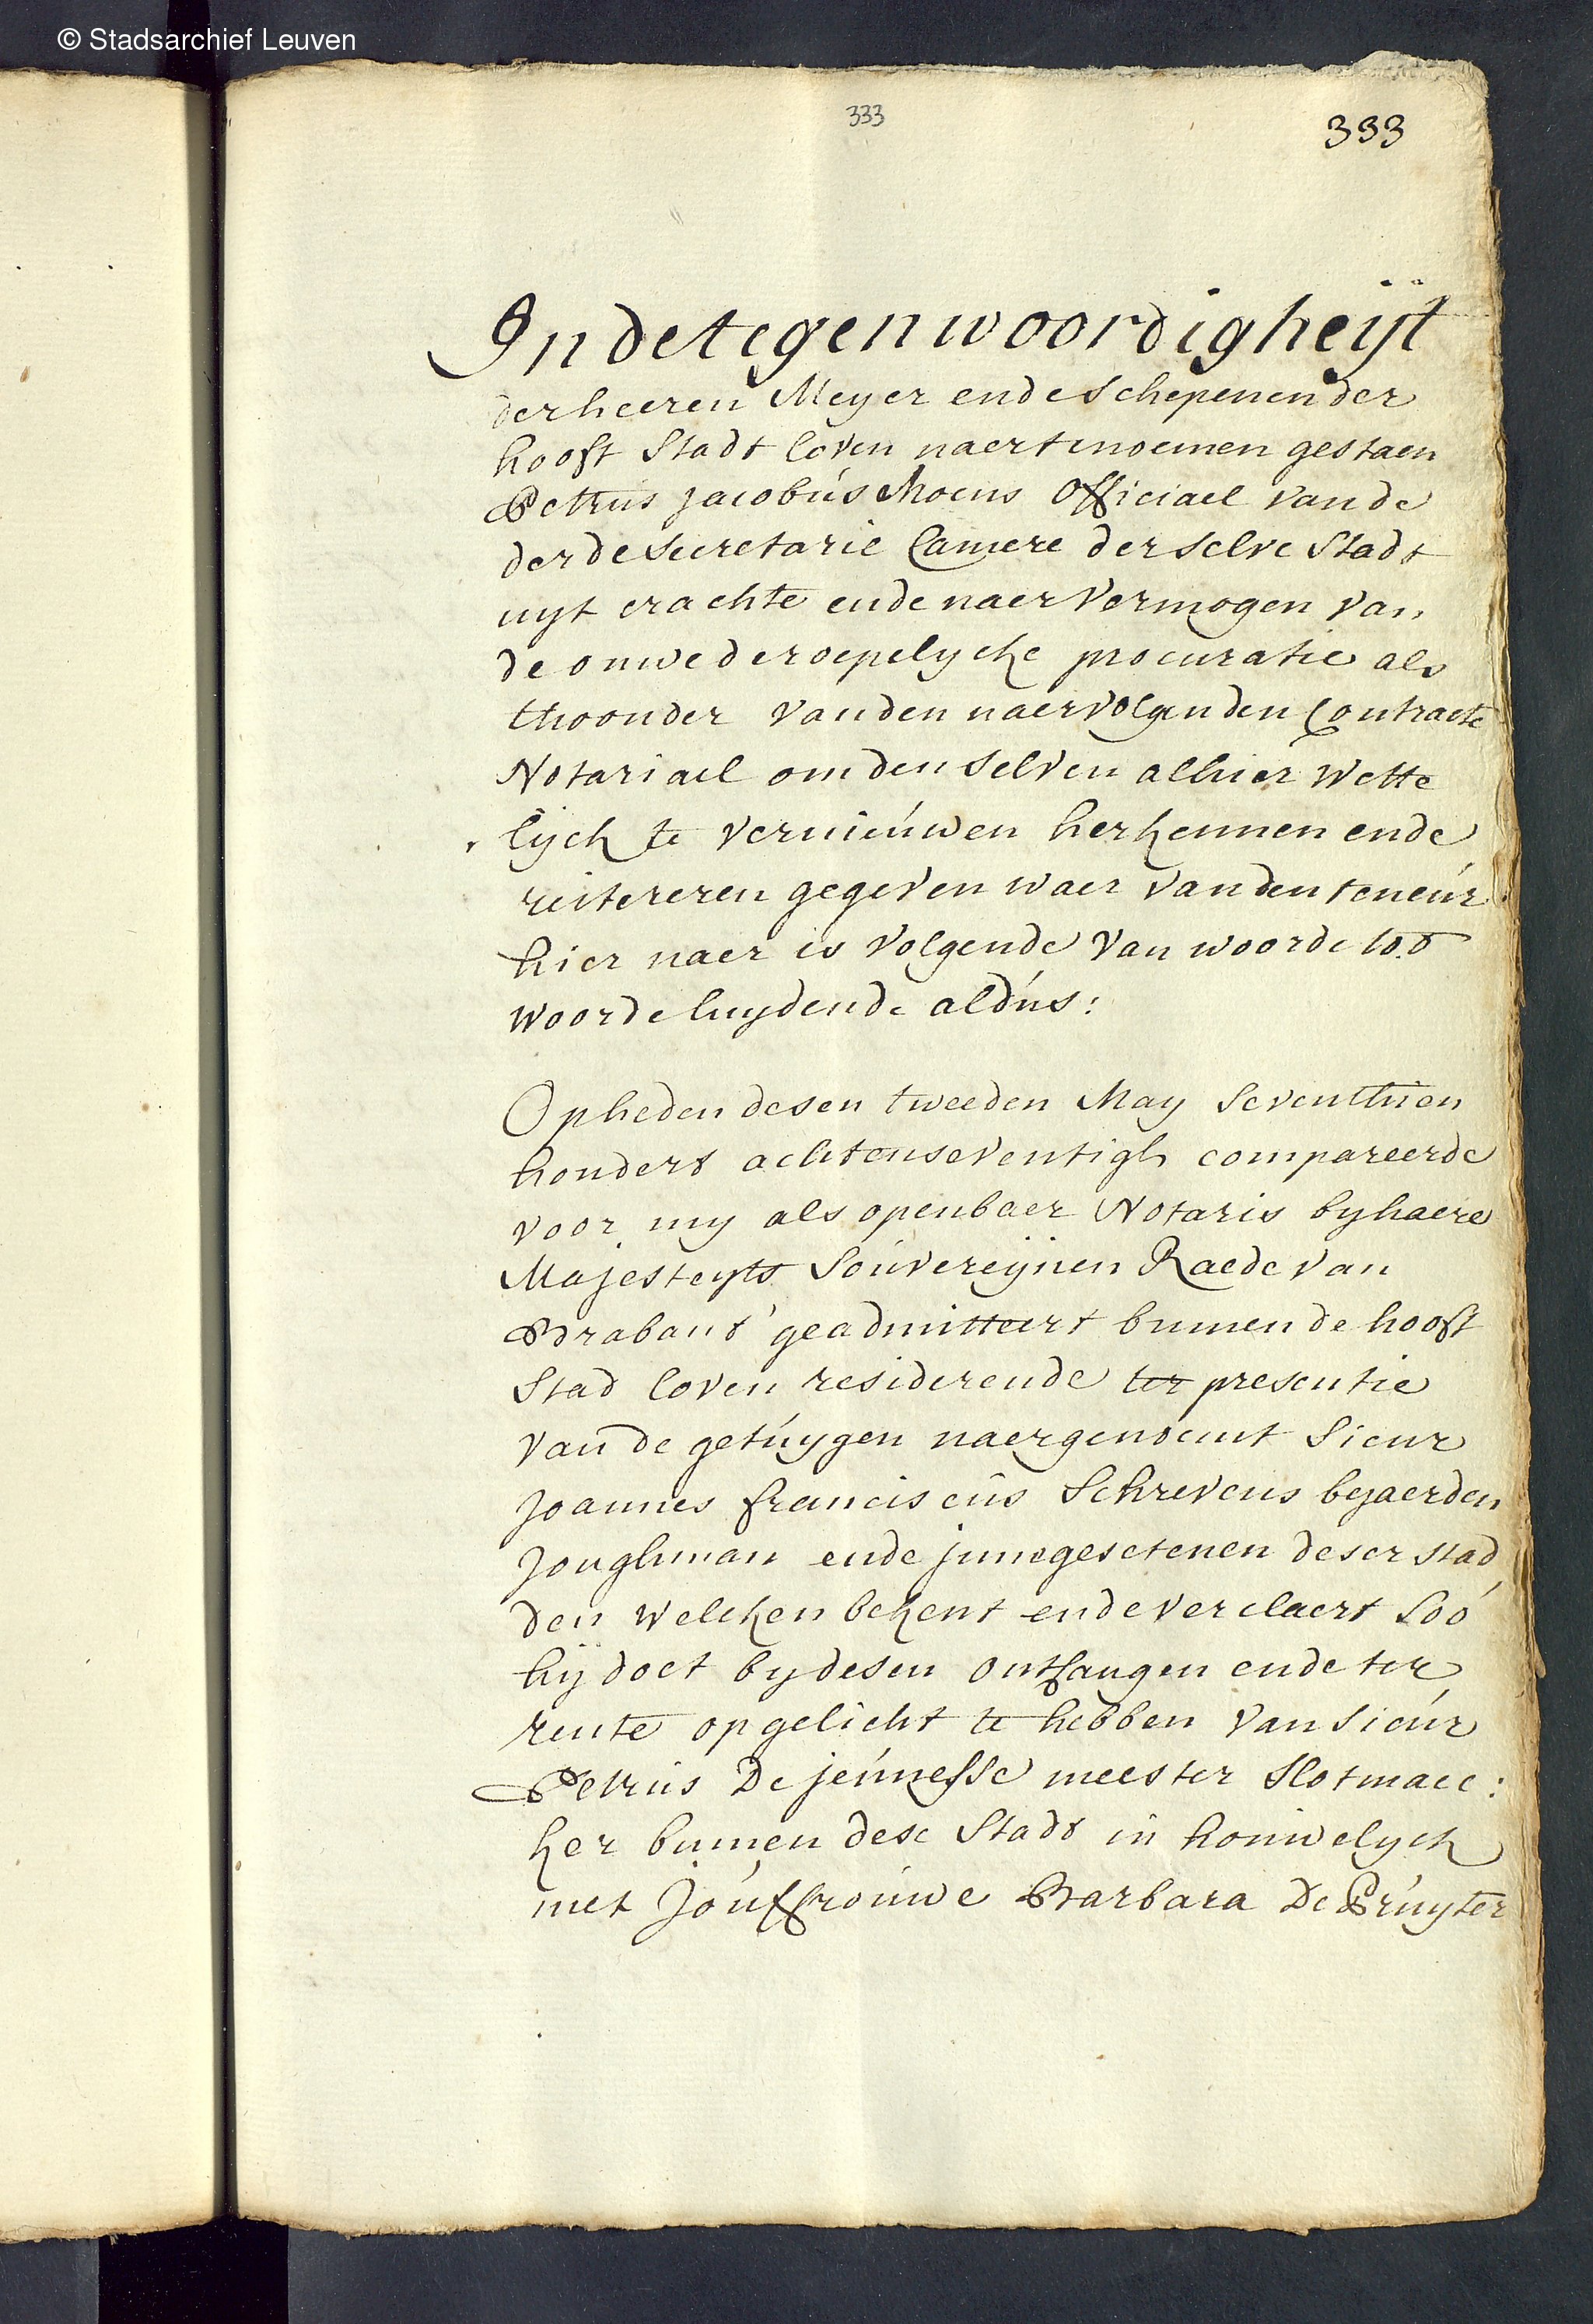 © Stadsarchief Leuven
333
333
In de tegenwoordigheijt
der heeren Meyer ende schepenen der
hooft Stadt Loven naertenoemen gestaen
Petrus Jacobus Moens Officiael van de
derde secretarie Camere der selve Stadt
uyt crachte ende naer vermogen van
de onwederoepelycke procuratie als
thoonder van den naervolgenden Contracte
Notariael om den selven alhier wette
lyck te vernieúwen herkennen ende
reitereren gegeven waer van den teneúr
hier naer is volgende van woorde tot
woorde luydende aldús:
Op heden desen tweeden May seventhien
hondert achtenseventigh compareerde
voor my als openbaer Notaris by haere
Majesteyts Soúvereijnen Raede van
Brabant geadmitteert binnen de hooft
Stad Loven residerende ter presentie
van de getúygen naergenoemt Sieur
Joannes franciscus Schrevens bejaerden
Jonghman ende innegesetenen deser stad
den welcken bekent ende verclaert soó
hij doet by desen ontfangen ende ter
rente opgelicht te hebben van sieúr
Petrus De jeúnesse meester Slotmaec:
ker binnen dese Stadt in houwelyck
met Joúffroúwe Barbara De Prúyter